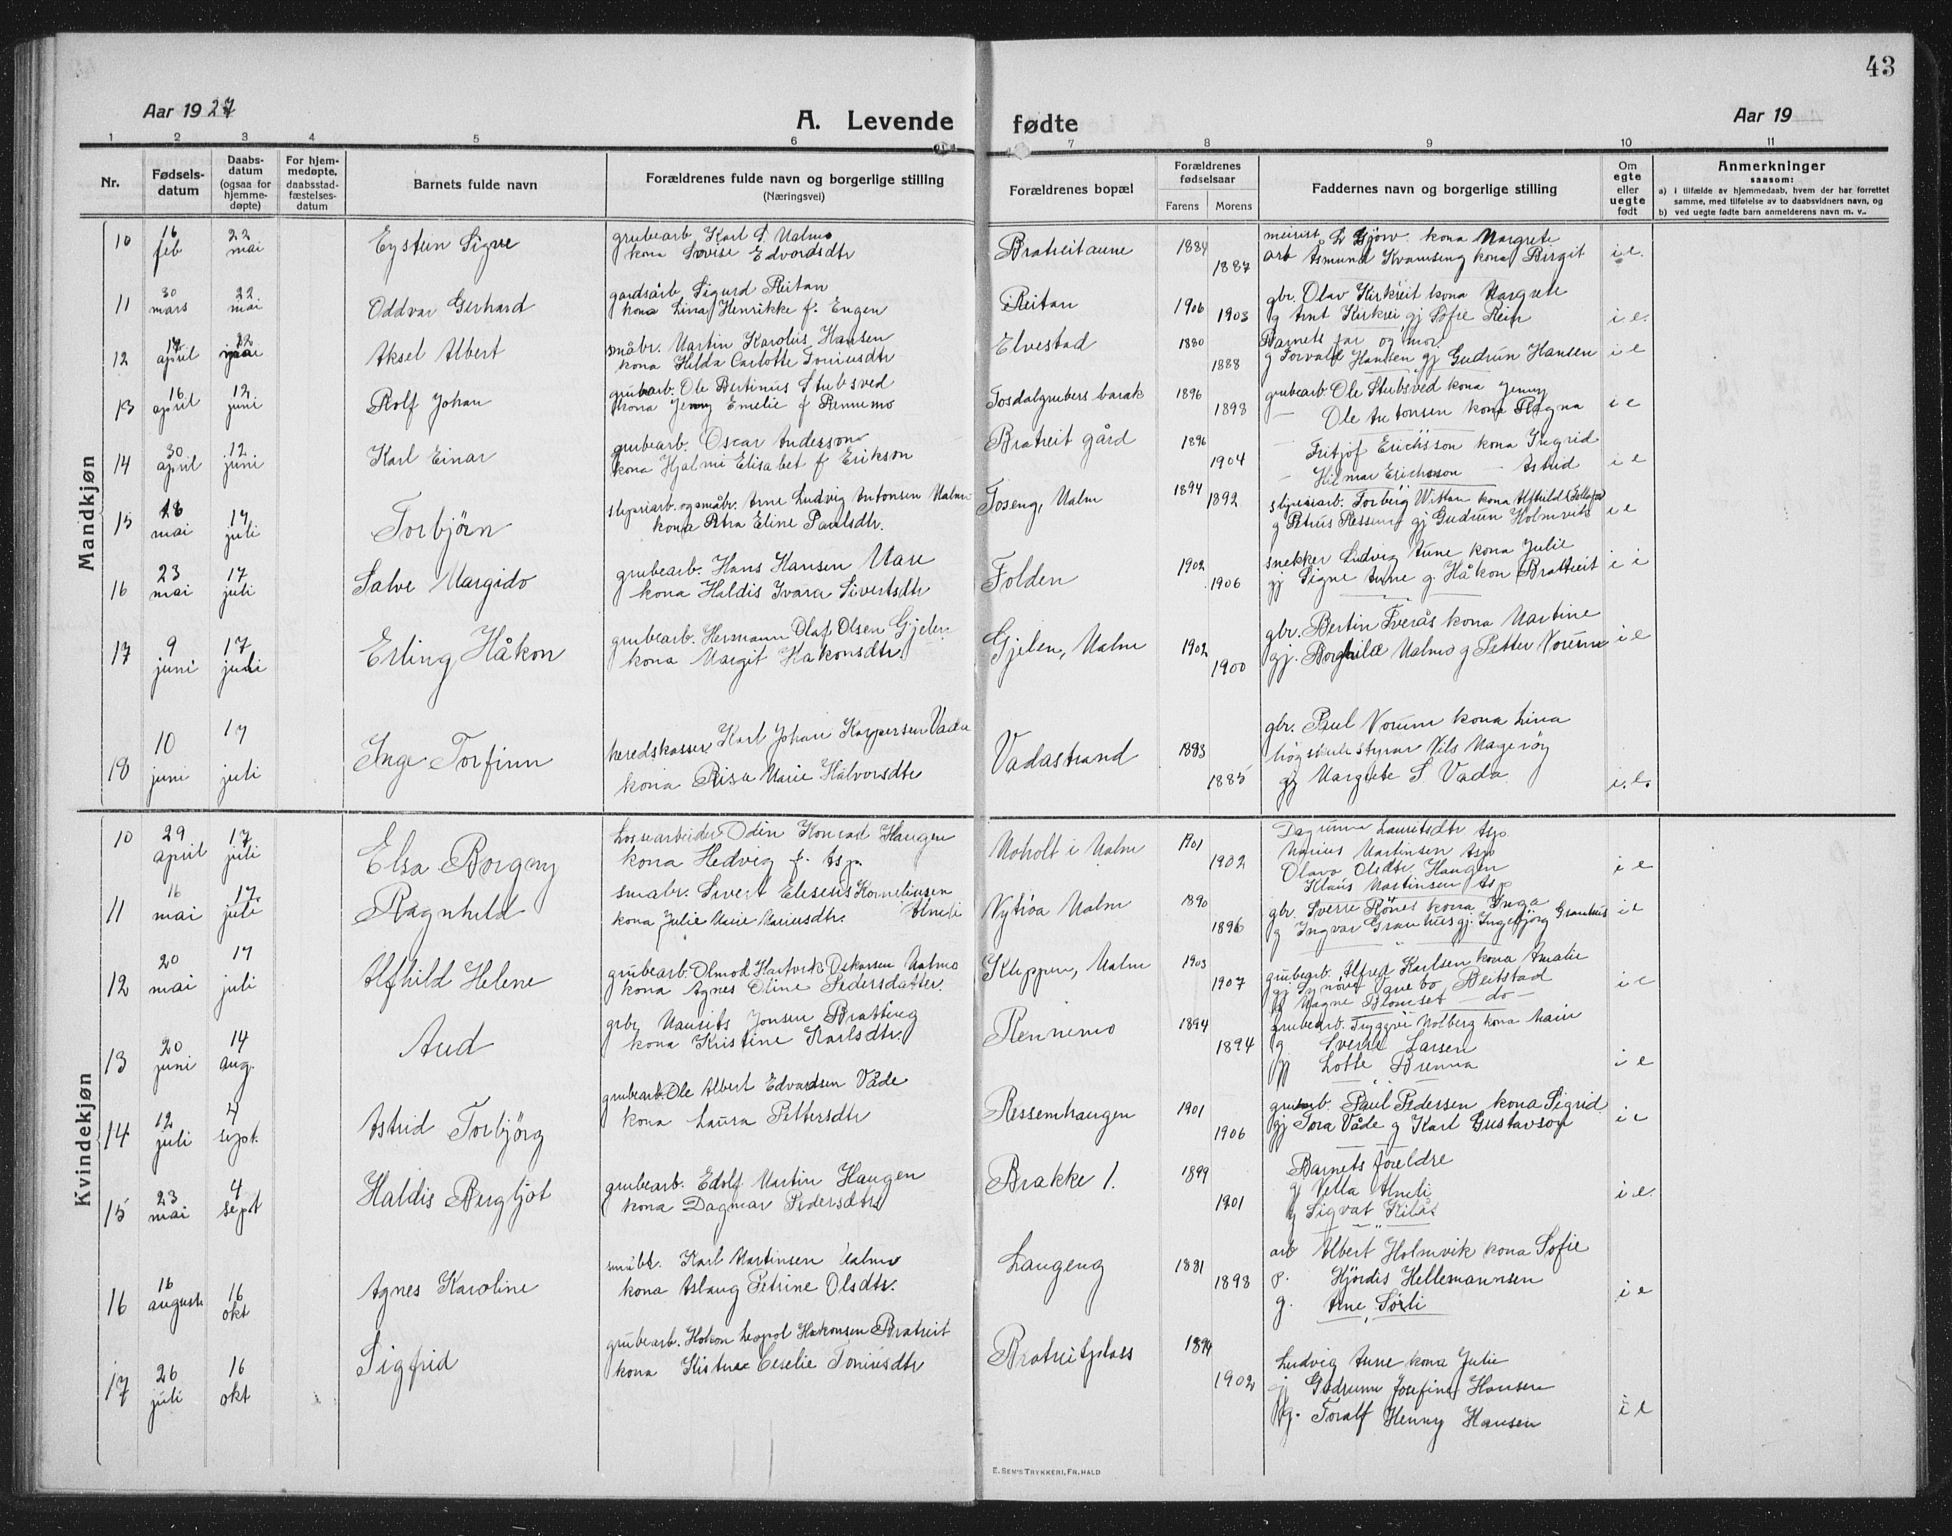 43
Aar 1927
A. Levende fødte
Aar 19
1 2 3 4 5 6 7 8 9 10 11
Nr.
Fødsels-
datum
Daabs-
datum
(ogsaa for
hjemme-
døpte)
For hjem-
medøpte,
daabsstad-
fæstelses-
datum
Barnets fulde navn
Forældrenes fulde navn og borgerlige stilling
(Næringsvei)
Forældrenes bopæl
Forældrenes
fødselsaar
Farens Morens
Faddernes navn og borgerlige stilling
Om
egte
eller
uegte
født
Anmerkninger
saasom:
a) i tilfælde av hjemmedaab, hvem der har forrettet
samme, med tilføielse av to daabsvidners navn, og
b) ved uegte fødte barn anmelderens navn m. v.
Mandkjøn
10 16 feb 22 mai Eystein Signe
grubearb. Karl S. Malmo
kona Lovise Edvardsdtr
Bratreitaune 1884 1887
meierist L Gjörv kona Margrete
arb Asmund Kvamseng kona Birgit i e.
11 30 mars 22 mai Oddvar Gerhard
gardsarb. Sigurd Reitan
kona Lina Henrikke f. Engen
Reitan 1906 1903
gbr. Olav Kirkreit kona Margrete
g Arnt Kirkrei gj Sofie Rein i e.
12 17 april 22 mai Aksel Albert
småbr. Martin Karolius Hansen
kona Hilda Carlotte Toniusdtr
Elvestad 1880 1888
Barnets far og mor.
g Torvald Hansen gj Gudrun Hansen i e
13 16 april 12 juni Rolf Johan
grubearb. Ole Bertinus Stubsved
kona Jenny Emelie f Rennemo
Tosdalgrubers barak 1896 1898
grubearb. Ole Stubsved kona Jenny
— Ole Antonsen kona Ragna i e
14 30 april 12 juni Karl Einar
grubearb. Oscar Anderson
kona Hjalmi Elisabet f Erikson
Bratreit gård 1896 1904
— Fritjof Erichsson kona Ingrid
— Hilmar Erichsson — Astrid i e
15 18 mai 17 juli Torbjörn
slyseriarb. og småbr. Arne Ludvig Antonsen Malm
kona Petra Eline Paulsdtr.
Toseng, Malm 1894 1892
g Petrus Ressem gj Gudrun Holmvik i e
16 23 mai 17 juli Salve Margido
grubearb. Hans Hansen Mare
kona Haldis Ivara Sivertsdtr
Folden 1902 1906
snekker Ludvig Aune kona Julie
gj Signe Aune g. Håkon Bratreit i i
17 9 juni 17 juli Erling Håkon
grubearb. Hermann Olaf Olsen Gjelen
kona Margit Hakonsdtr.
Gjelen, Malm 1902 1900
gbr. Bertin Tverås kona Martine
gj. Borghild Malmo g Petter Vorum i e
18 10 juni 17 juli Inge Torfinn
heredskasser Karl Johan Kaspersen Vada
kona Risa Marie Halvorsdtr
Vadastrand 1883 1885
gbr. Paul Vorum kona Lina
högskule styrar Nils Magerög
gj Margrete S. Vada i. e.
Kvindekjøn
10 29 april 17 juli Elsa Borgny
Lossearbeider Odin Konrad Haugen
kona Hedvig f. Asp.
Moholt i Malm 1901 1902
Dagrunn Lauritsdtr Asp
Marius Martinsen Asp
Olava Olsdtr Haugen
Klaus Martinsen Asp i e
11 16 mai 17 juli Ragnhild
smabr. Sivert Eliseus Korneliussen
kona Julie Marie Mariusdtr. Almli
Nytröa Malm 1890 1896
gbr. Sverre Rönes kona Inga
g Ingvar Granhus gj. Ingebjörg Granhus i e
12 20 mai 17 juli Alfhild Helene
grubearb. Olmod Hartvik Oskarsen Malmo
kona Agnes Oline Pedersdatter.
Klippen, Malm 1903 1907
grubearb. Alfred Karlsen kona Amalie
gj Synöve Buebo Beitstad
g Magne Blomset — do — i e
13 20 juni 14 aug. Aud
grbr Mausits Jonsen Bratteng
kona Kristine Karlsdtr.
Rennemo 1894 1894
grubearb. Tryggve Molberg kona Mair
g Sverre Larsen
gj Lotte Brenna i e
14 12 juli 4 sept. Astrid Torbjörg
grubearb. Ole Albert Edvardsen Våde
kona Laura Pettersdtr
Ressemhaugen 1901 1906
grubearb. Paul Pedersen kona Sigrid
gj Tora Våde g Karl Gustavson i e
15 23 mai 4 sept Haldis Bergljot
grubearb. Edolf Martin Haugen
kona Dagmar Pedersdtr
Brakke 1. 1899 1901
Barnets foreldre
gj Vella Almli
g Sigvat Kilås i e.
16 16 august 16 okt Agnes Karoline
småbr. Karl Martinsen Malmo
kona Aslaug Petrine Olsdtr.
Langeng 1881 1898
arb Albert Holmvik kona Sofie
p. Hjördis Hellemannsen
g. Arne Sörli i e
17 26 juli 16 okt Sigfrid
grubearb. Hakon Leopol Hakonsen Bratreit
kona Kistna Ceselie Toniusdtr
Bratreitplass 1894 1902
Ludvig Aune kona Julie
gj Gudrunn Josefine Hansen
g. Toralf Henry Hansen i e
E. Sem's Trykkeri, Fr. Hald